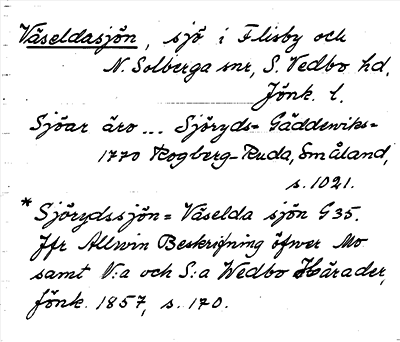 Väseldasjön, sjö i Flisby och
N. Solberga snr, S. Vedbo hd,
Jönk. l.
Sjöar äro ... Sjöryds- Gäddewiks-
1770 Rogberg-Ruda, Småland,
s. 1021.
* Sjörydssjön = Väselda sjön G35.
Jfr Allwin Beskrifning öfwer Mo
samt N:a och S:a Wedbo Härader,
Jönk. 1857, s. 170.